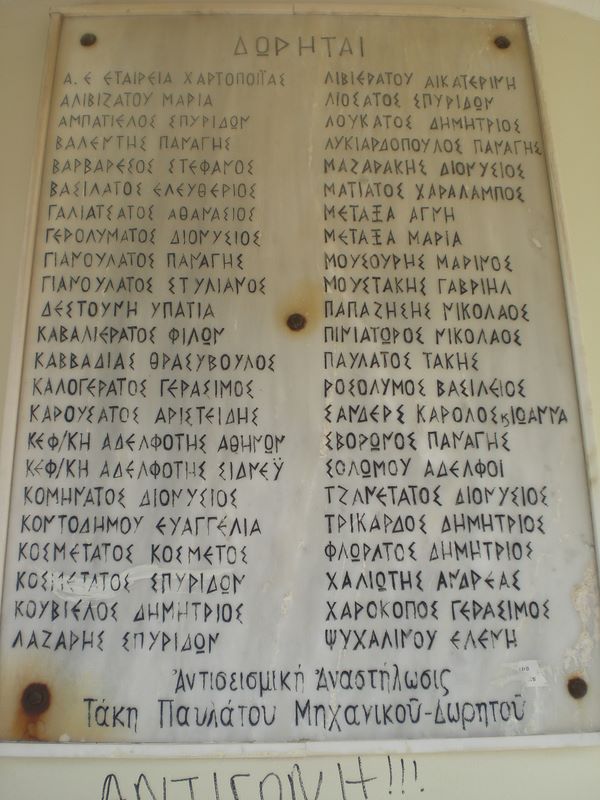 ΔΩΡΗΤΑΙ
Α. Ε ΕΤΑΙΡΕΙΑ ΧΑΡΤΟΠΟΙΪΑΣ
ΑΛΙΒΙΖΑΤΟΥ ΜΑΡΙΑ
ΑΜΠΑΤΙΕΛΟΣ ΣΠΥΡΙΔΩΝ
ΒΑΛΕΝΤΗΣ ΠΑΝΑΓΗΣ
ΒΑΡΒΑΡΕΣΟΣ ΣΤΕΦΑΝΟΣ
ΒΑΣΙΛΑΤΟΣ ΕΛΕΥΘΕΡΙΟΣ
ΓΑΛΙΑΤΣΑΤΟΣ ΑΘΑΝΑΣΙΟΣ
ΓΕΡΟΛΥΜΑΤΟΣ ΔΙΟΝΥΣΙΟΣ
ΓΙΑΝΟΥΛΑΤΟΣ ΠΑΝΑΓΗΣ
ΓΙΑΝΟΥΛΑΤΟΣ ΣΤΥΛΙΑΝΟΣ
ΔΕΣΤΟΥΝΗ ΥΠΑΤΙΑ
ΚΑΒΑΛΙΕΡΑΤΟΣ ΦΙΛΩΝ
ΚΑΒΒΑΔΙΑΣ ΘΡΑΣΥΒΟΥΛΟΣ
ΚΑΛΟΓΕΡΑΤΟΣ ΓΕΡΑΣΙΜΟΣ
ΚΑΡΟΥΣΑΤΟΣ ΑΡΙΣΤΕΙΔΗΣ
ΚΕΦ/ΚΗ ΑΔΕΛΦΟΤΗΣ ΑΘΗΝΩΝ
ΚΕΦ/ΚΗ ΑΔΕΛΦΟΤΗΣ ΣΙΔΝΕΫ
ΚΟΜΗΝΑΤΟΣ ΔΙΟΝΥΣΙΟΣ
ΚΟΝΤΟΔΗΜΟΥ ΕΥΑΓΓΕΛΙΑ
ΚΟΣΜΕΤΑΤΟΣ ΚΟΣΜΕΤΟΣ
ΚΟΣΜΕΤΑΤΟΣ ΣΠΥΡΙΔΩΝ
ΚΟΥΒΙΕΛΟΣ ΔΗΜΗΤΡΙΟΣ
ΛΑΖΑΡΗΣ ΣΠΥΡΙΔΩΝ
ΛΙΒΙΕΡΑΤΟΥ ΑΙΚΑΤΕΡΙΝΗ
ΛΙΟΣΑΤΟΣ ΣΠΥΡΙΔΩΝ
ΛΟΥΚΑΤΟΣ ΔΗΜΗΤΡΙΟΣ
ΛΥΚΙΑΡΔΟΠΟΥΛΟΣ ΠΑΝΑΓΗΣ
ΜΑΖΑΡΑΚΗΣ ΔΙΟΝΥΣΙΟΣ
ΜΑΤΙΑΤΟΣ ΧΑΡΑΛΑΜΠΟΣ
ΜΕΤΑΞΑ ΑΓΝΗ
ΜΕΤΑΞΑ ΜΑΡΙΑ
ΜΟΥΣΟΥΡΗΣ ΜΑΡΙΝΟΣ
ΜΟΥΣΤΑΚΗΣ ΓΑΒΡΙΗΛ
ΠΑΠΑΖΗΣΗΣ ΝΙΚΟΛΑΟΣ
ΠΙΝΙΑΤΩΡΟΣ ΝΙΚΟΛΑΟΣ
ΠΑΥΛΑΤΟΣ ΤΑΚΗΣ
ΡΟΣΟΛΥΜΟΣ ΒΑΣΙΛΕΙΟΣ
ΣΑΝΔΕΡΣ ΚΑΡΟΛΟΣ κ ΙΩΑΝΝΑ
ΣΒΟΡΩΝΟΣ ΠΑΝΑΓΗΣ
ΣΟΛΩΜΟΥ ΑΔΕΛΦΟΙ
ΤΖΑΝΕΤΑΤΟΣ ΔΙΟΝΥΣΙΟΣ
ΤΡΙΚΑΡΔΟΣ ΔΗΜΗΤΡΙΟΣ
ΦΛΩΡΑΤΟΣ ΔΗΜΗΤΡΙΟΣ
ΧΑΛΙΩΤΗΣ ΑΝΔΡΕΑΣ
ΧΑΡΟΚΟΠΟΣ ΓΕΡΑΣΙΜΟΣ
ΨΥΧΑΛΙΝΟΥ ΕΛΕΝΗ
Ἀντισεισμική Ἀναστήλωσις
Τάκη Παυλάτου Μηχανικοῦ-Δωρητοῦ
ΑΝΤΙΓΟΝΗ!!!